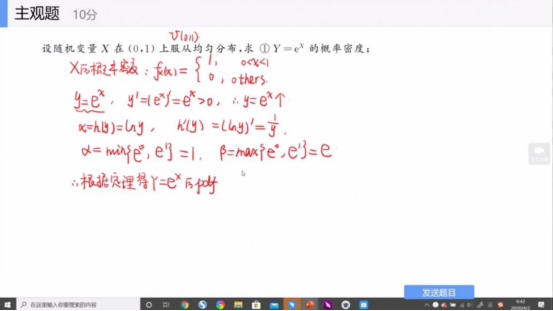 主观题 10分
U(0,1)
设随机变量 X 在 (0,1) 上服从均匀分布,求 ① Y=eˣ 的概率密度;
X的概率密度:fX(x)={1, 0<x<1
0, others.
y=eˣ, y'=(eˣ)'=eˣ>0, ∴y=eˣ↑
x=h(y)=lny, h'(y)=(lny)'=1/y.
α=min{e⁰, e¹}=1. β=max{e⁰, e¹}=e
∴根据定理得Y=eˣ的pdf
发送题目
在这里输入你要搜索的内容
6:42
2020/4/2